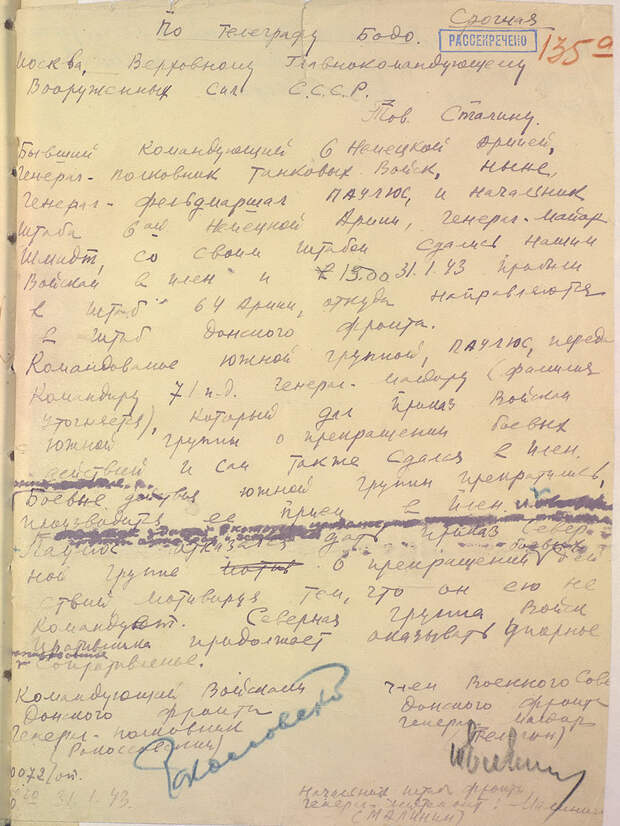 Срочная
По Телеграфу Бодо.
РАССЕКРЕЧЕНО
135а
Москва, Верховному Главнокомандующему
Вооруженных Сил С.С.С.Р.
Тов. Сталину.
Бывший командующий 6 Немецкой Армией,
генерал-полковник танковых войск, ныне,
генерал-фельдмаршал ПАУЛЮС, и начальник
штаба 6ой Немецкой Армии, генерал-майор
Шмидт, со своим штабом сдались нашим
войскам в плен и в 13.00 31.1.43 прибыли
в штаб 64 Армии, откуда направляются
в штаб Донского фронта.
Командование южной группой, ПАУЛЮС, переда
командиру 71 п.д. генерал-майору (фамилия
уточняется), который дал приказ войскам
южной группы о прекращении боевых
действий и сам также сдался в плен.
Боевые действия южной группы прекратились,
производится ее прием в плен.
Паулюс отказался дать приказ Север-
ной группе о прекращении боевых дей
ствий мотивируя тем, что он ею не
командует. Северная группа войск
противника продолжает оказывать упорное
сопротивление.
Командующий войсками
Донского фронта
Генерал-полковник
(Рокоссовский)
Член Военного Сове
Донского фронта
генерал-майор
(Телегин)
0072/оп.
31.1.43.
Начальник штаба фронта
генерал-лейтенант: Малинин
(МАЛИНИН)